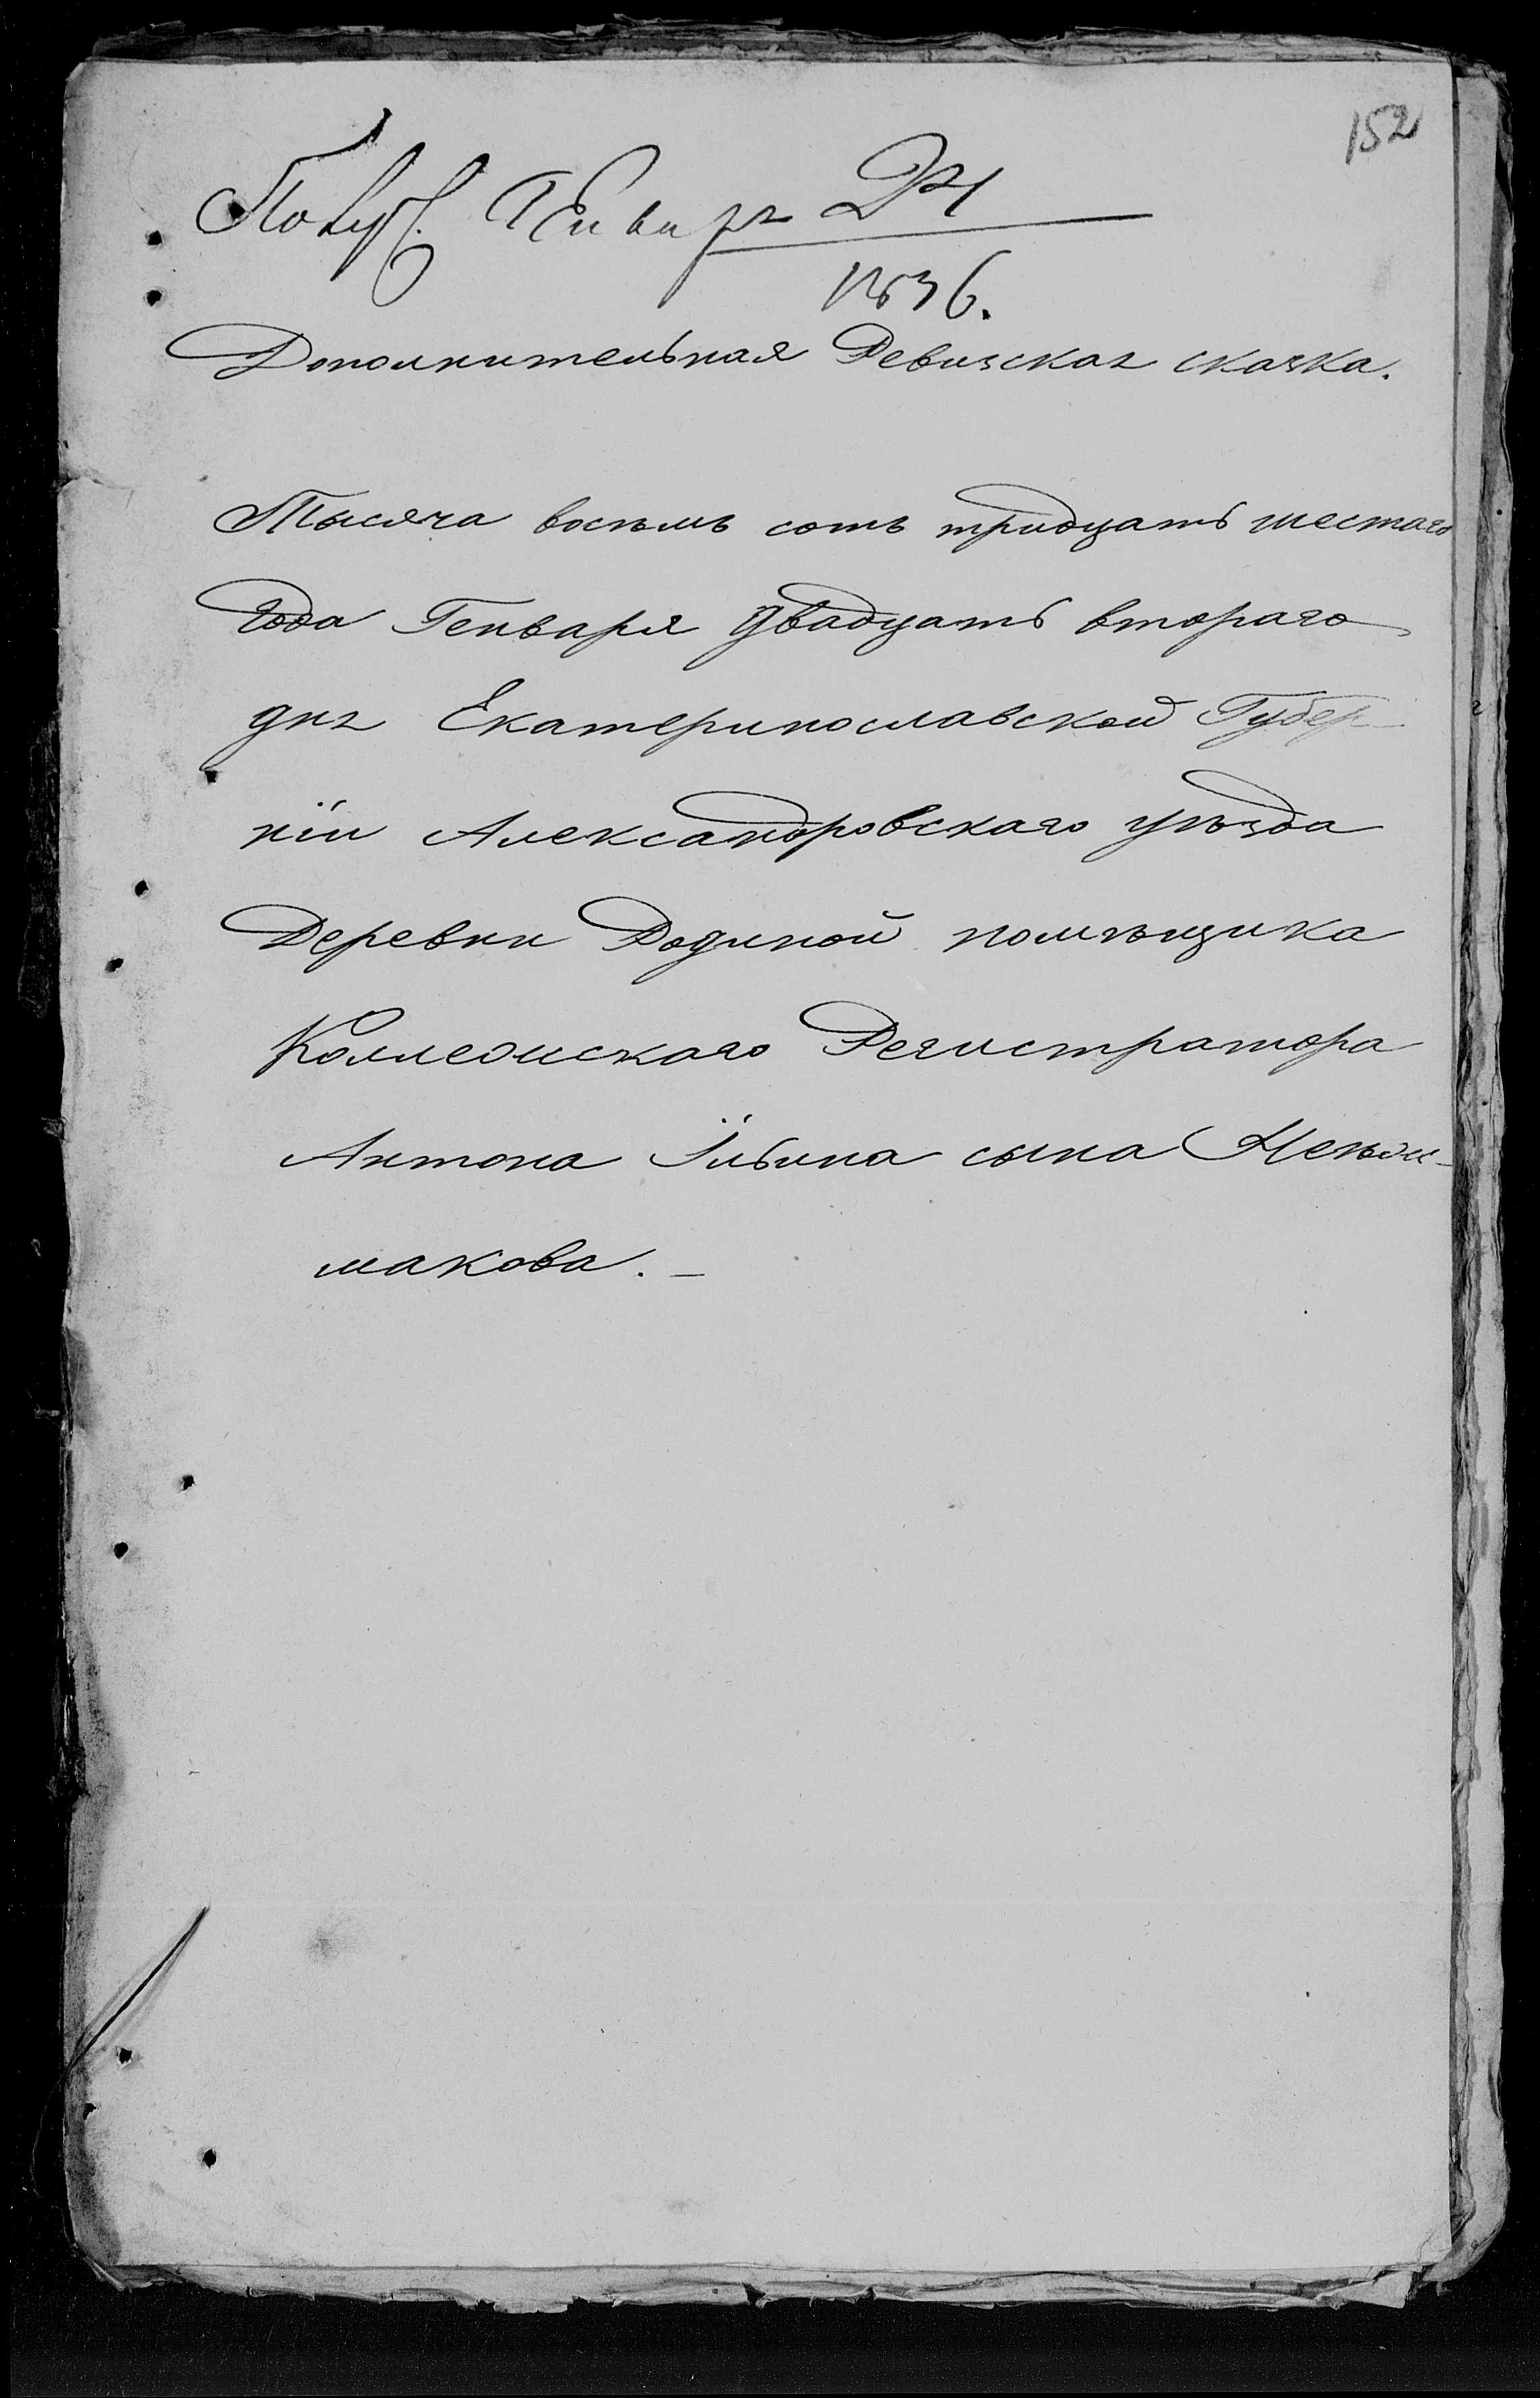 152
Генваря 24
1836.
Дополнительная Ревизская сказка.
Тысяча восемь сотъ тридцать шестаго
Года Генваря двадцать втораго
дня Екатеринославской Губер-
ніи Александровскаго уѣзда
Деревни Родиной помѣщика
Коллежскаго Регистратора
Антона Ильина сына
макова.